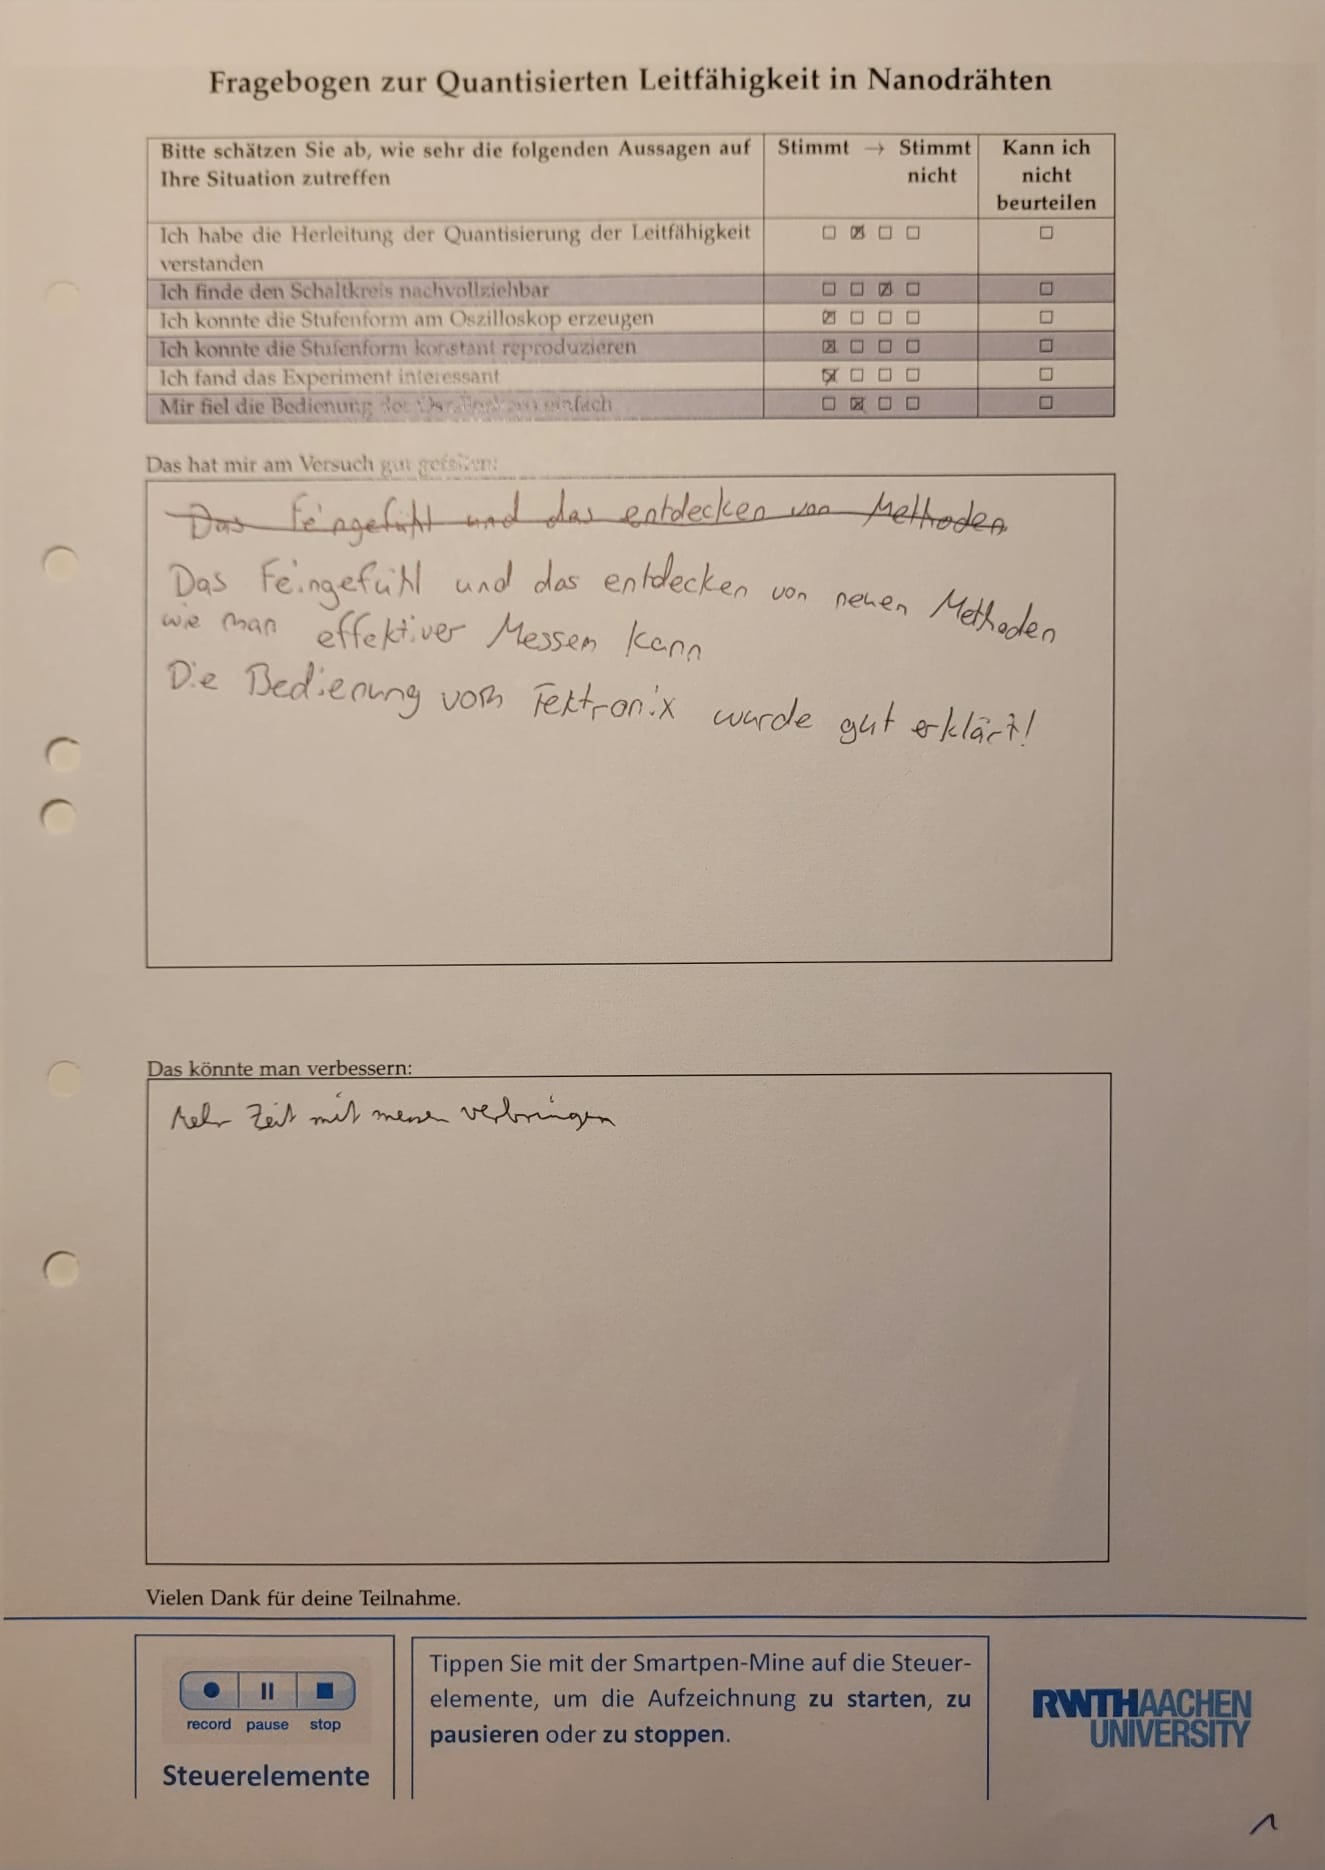 Fragebogen zur Quantisierten Leitfähigkeit in Nanodrähten
Bitte schätzen Sie ab, wie sehr die folgenden Aussagen auf
Ihre Situation zutreffen
Stimmt → Stimmt
nicht
Kann ich
nicht
beurteilen
Ich habe die Herleitung der Quantisierung der Leitfähigkeit
verstanden
☐ ☒ ☐ ☐ ☐
Ich finde den Schaltkreis nachvollziehbar
☐ ☐ ☒ ☐ ☐
Ich konnte die Stufenform am Oszilloskop erzeugen
☒ ☐ ☐ ☐ ☐
Ich konnte die Stufenform konstant reproduzieren
☒ ☐ ☐ ☐ ☐
Ich fand das Experiment interessant
☒ ☐ ☐ ☐ ☐
Mir fiel die Bedienung des einfach
☐ ☒ ☐ ☐ ☐
Das hat mir am Versuch gut gefallen:
Das Feingefühl und das entdecken von Methoden
Das Feingefühl und das entdecken von neuen Methoden
wie man effektiver Messen kann
Die Bedienung vom Tektronix wurde gut erklärt!
Das könnte man verbessern:
Mehr Zeit mit messen verbringen
Vielen Dank für deine Teilnahme.
record pause stop
Steuerelemente
Tippen Sie mit der Smartpen-Mine auf die Steuer-
elemente, um die Aufzeichnung zu starten, zu
pausieren oder zu stoppen.
RWTHAACHEN
UNIVERSITY
1